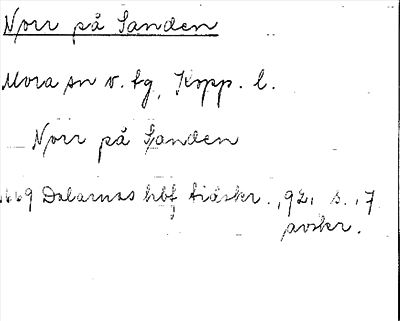 Norr på Sanden
Mora sn v. fg, Kopp. l.
Norr på Sanden
1669 Dalarnas hbf tidskr. 1921 s. 17
avskr.